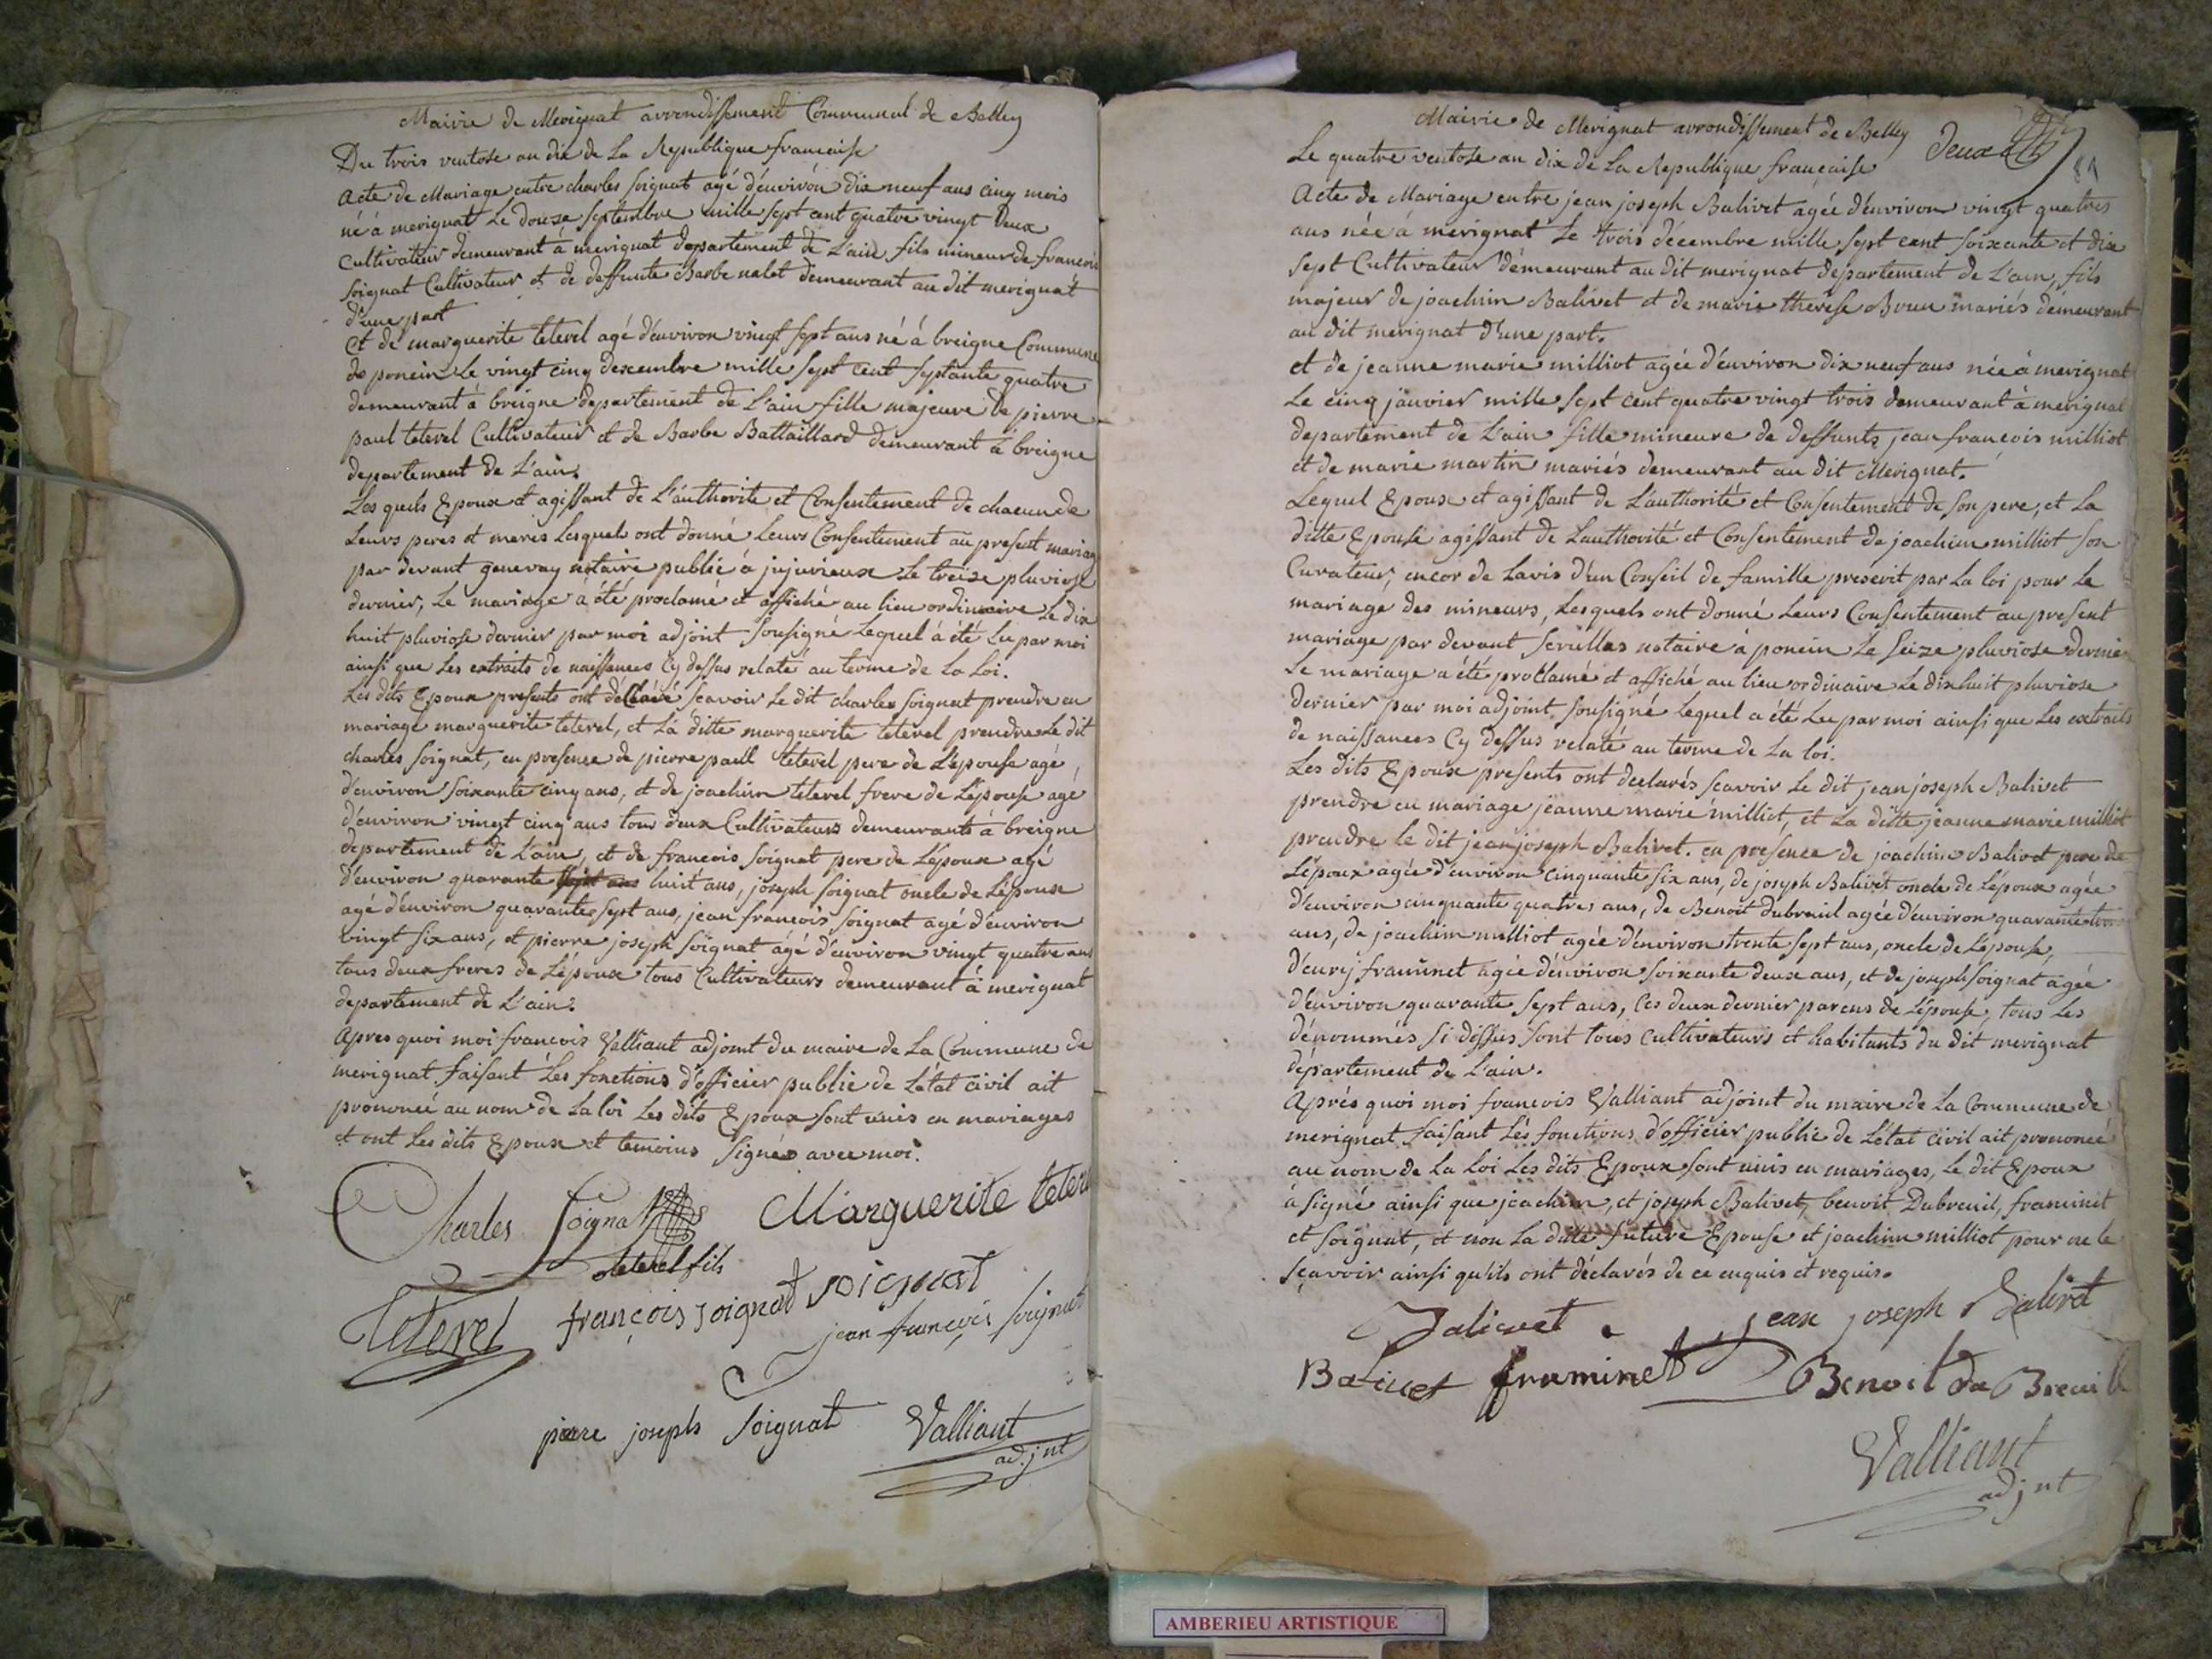 Mairie de Merignat arrondissement Communal de Belley
Du trois ventose an dix de La Republique francaise
Acte de Mariage entre charles soignat agé d'environ dix neuf ans cinq mois
né à merignat Le douze septembre mille sept cent quatre vingt deux
Cultivateur demeurant à merignat departement de L'ain fils mineur de francois
soignat Cultivateur et de deffunte Barbe nalet demeurant au dit merignat
d'une part
Et de marguerite teterel agé d'environ vingt sept ans né à breigne Commune
de poncin Le vingt cinq descembre mille sept cent septante quatre
demeurant à breigne departement de L'ain fille majeure de pierre
paul teterel Cultivateur et de Barbe Battaillard demeurant à breigne
departement de L'ain.
Les quels Epoux et agissant de L'authorité et Consentement de chacun de
Leurs peres et meres Lesquels ont donné Leurs Consentement au present mariag
par devant genevay notaire public à jujurieux Le treize pluviose
dernier, Le mariage à été proclamé et affiché au lieu ordinaire Le dix
huit pluviose dernier par moi adjoint sousigné Lequel à été Lu par moi
ainsi que Les extraits de naissances Cy dessus relaté au terme de La Loi.
Les dits Epoux presents ont déclaré scavoir Le dit charles soignat prendre en
mariage marguerite teterel, et La ditte marguerite teterel prendre Le dit
charles soignat, en presense de pierre paul teterel pere de L'epouse agé
d'environ soixante cinq ans, et de joachim teterel frere de L'épouse agé
d'environ vingt cinq ans tous deux Cultivateurs demeurants à breigne
departement de L'ain, et de francois soignat pere de L'époux agé
d'environ quarante huit ans, joseph soignat oncle de L'époux
agé d'environ quarante sept ans, jean francois soignat agé d'environ
vingt six ans, et pierre joseph soignat agé d'environ vingt quatre ans
tous deux freres de L'époux tous Cultivateurs demeurant à merignat
departement de L'ain.
Apres quoi moi francois Valliant adjoint du maire de La Commune de
merignat faisant Les fonctions d'officier public de L'état civil ait
prononcé au nom de La loi Les dits Epoux sont unis en mariages
et ont Les dits Epoux et temoins signés avec moi.
Charles soignat Marguerite teterel
teterel fils
teterel françois soignat soignat
jean françois soignat
pierre joseph soignat Valliant
adjnt
Mairie de Merignat arrondissement de Belley Deux
89
Le quatre ventose an dix de La Republique française
Acte de Mariage entre jean joseph Balivet agée d'environ vingt quatres
ans née à mérignat Le trois décembre mille sept cent soixante et dix
sept Cultivateur démeurant au dit merignat departement de L'ain, fils
majeur de joachim Balivet et de marie therese Brun mariés démeurant
au dit merignat d'une part.
et de jeanne marie milliot agée d'environ dix neuf ans née à merignat
Le cinq janvier mille sept cent quatre vingt trois demeurant à merignat
departement de L'ain fille mineure de deffunts jean françois milliot
et de marie martin mariés demeurant au dit Merignat.
Lequel Epoux et agissant de L'authorité et Consentement de son pere, et La
ditte Epouse agissant de L'authorité et Consentement de joachim milliot son
Curateur, encor de Lavis d'un Conseil de famille prescrit par La loi pour Le
mariage des mineurs, Lesquels ont donné Leurs Consentement au present
mariage par devant notaire à poncin Le seize pluviose dernier
Le mariage a été proclamé et affiché au lieu ordinaire Le dixhuit pluviose
dernier par moi adjoint sousigné Lequel a été Lu par moi ainsi que Les extraits
de naissances Cy dessus relaté au terme de La loi.
Les dits Epoux presents ont declarés scavoir Le dit jean joseph Balivet
prendre en mariage jeanne marie milliot, et La ditte jeanne marie milliot
prendre le dit jean joseph Balivet. en presence de joachim Balivet pere de
L'époux agée d'environ cinquante six ans, de joseph Balivet oncle de L'époux agée
d'environ cinquante quatres ans, de Benoit dubreuil agée d'environ quarante trois
ans, de joachim milliot agée d'environ trente sept ans, oncle de L'épouse,
d'enrij framinet agée d'environ soixante deux ans, et de joseph soignat agée
d'environ quarante sept ans, Ces deux dernier parens de L'épouse, tous Les
dénommés si dessus sont tous cultivateurs et habitants du dit merignat
département de L'ain.
Aprés quoi moi francois Valliant adjoint du maire de La Commune de
merignat, faisant Les fonctions d'officier public de L'état civil ait prononcé
au nom de La Loi Les dits Epoux sont unis en mariages, Le dit Epoux
à signé ainsi que joachim, et joseph Balivet, benoit Dubreuil, framinet
et soignat, et non La ditte future Epouse et joachim milliot pour ne le
sçavoir ainsi qu'ils ont déclarés de ce enquis et requis.
Balivet jean joseph Balivet
Balivet framinet Benoit du Breuil
Valliant
adjnt
AMBERIEU ARTISTIQUE